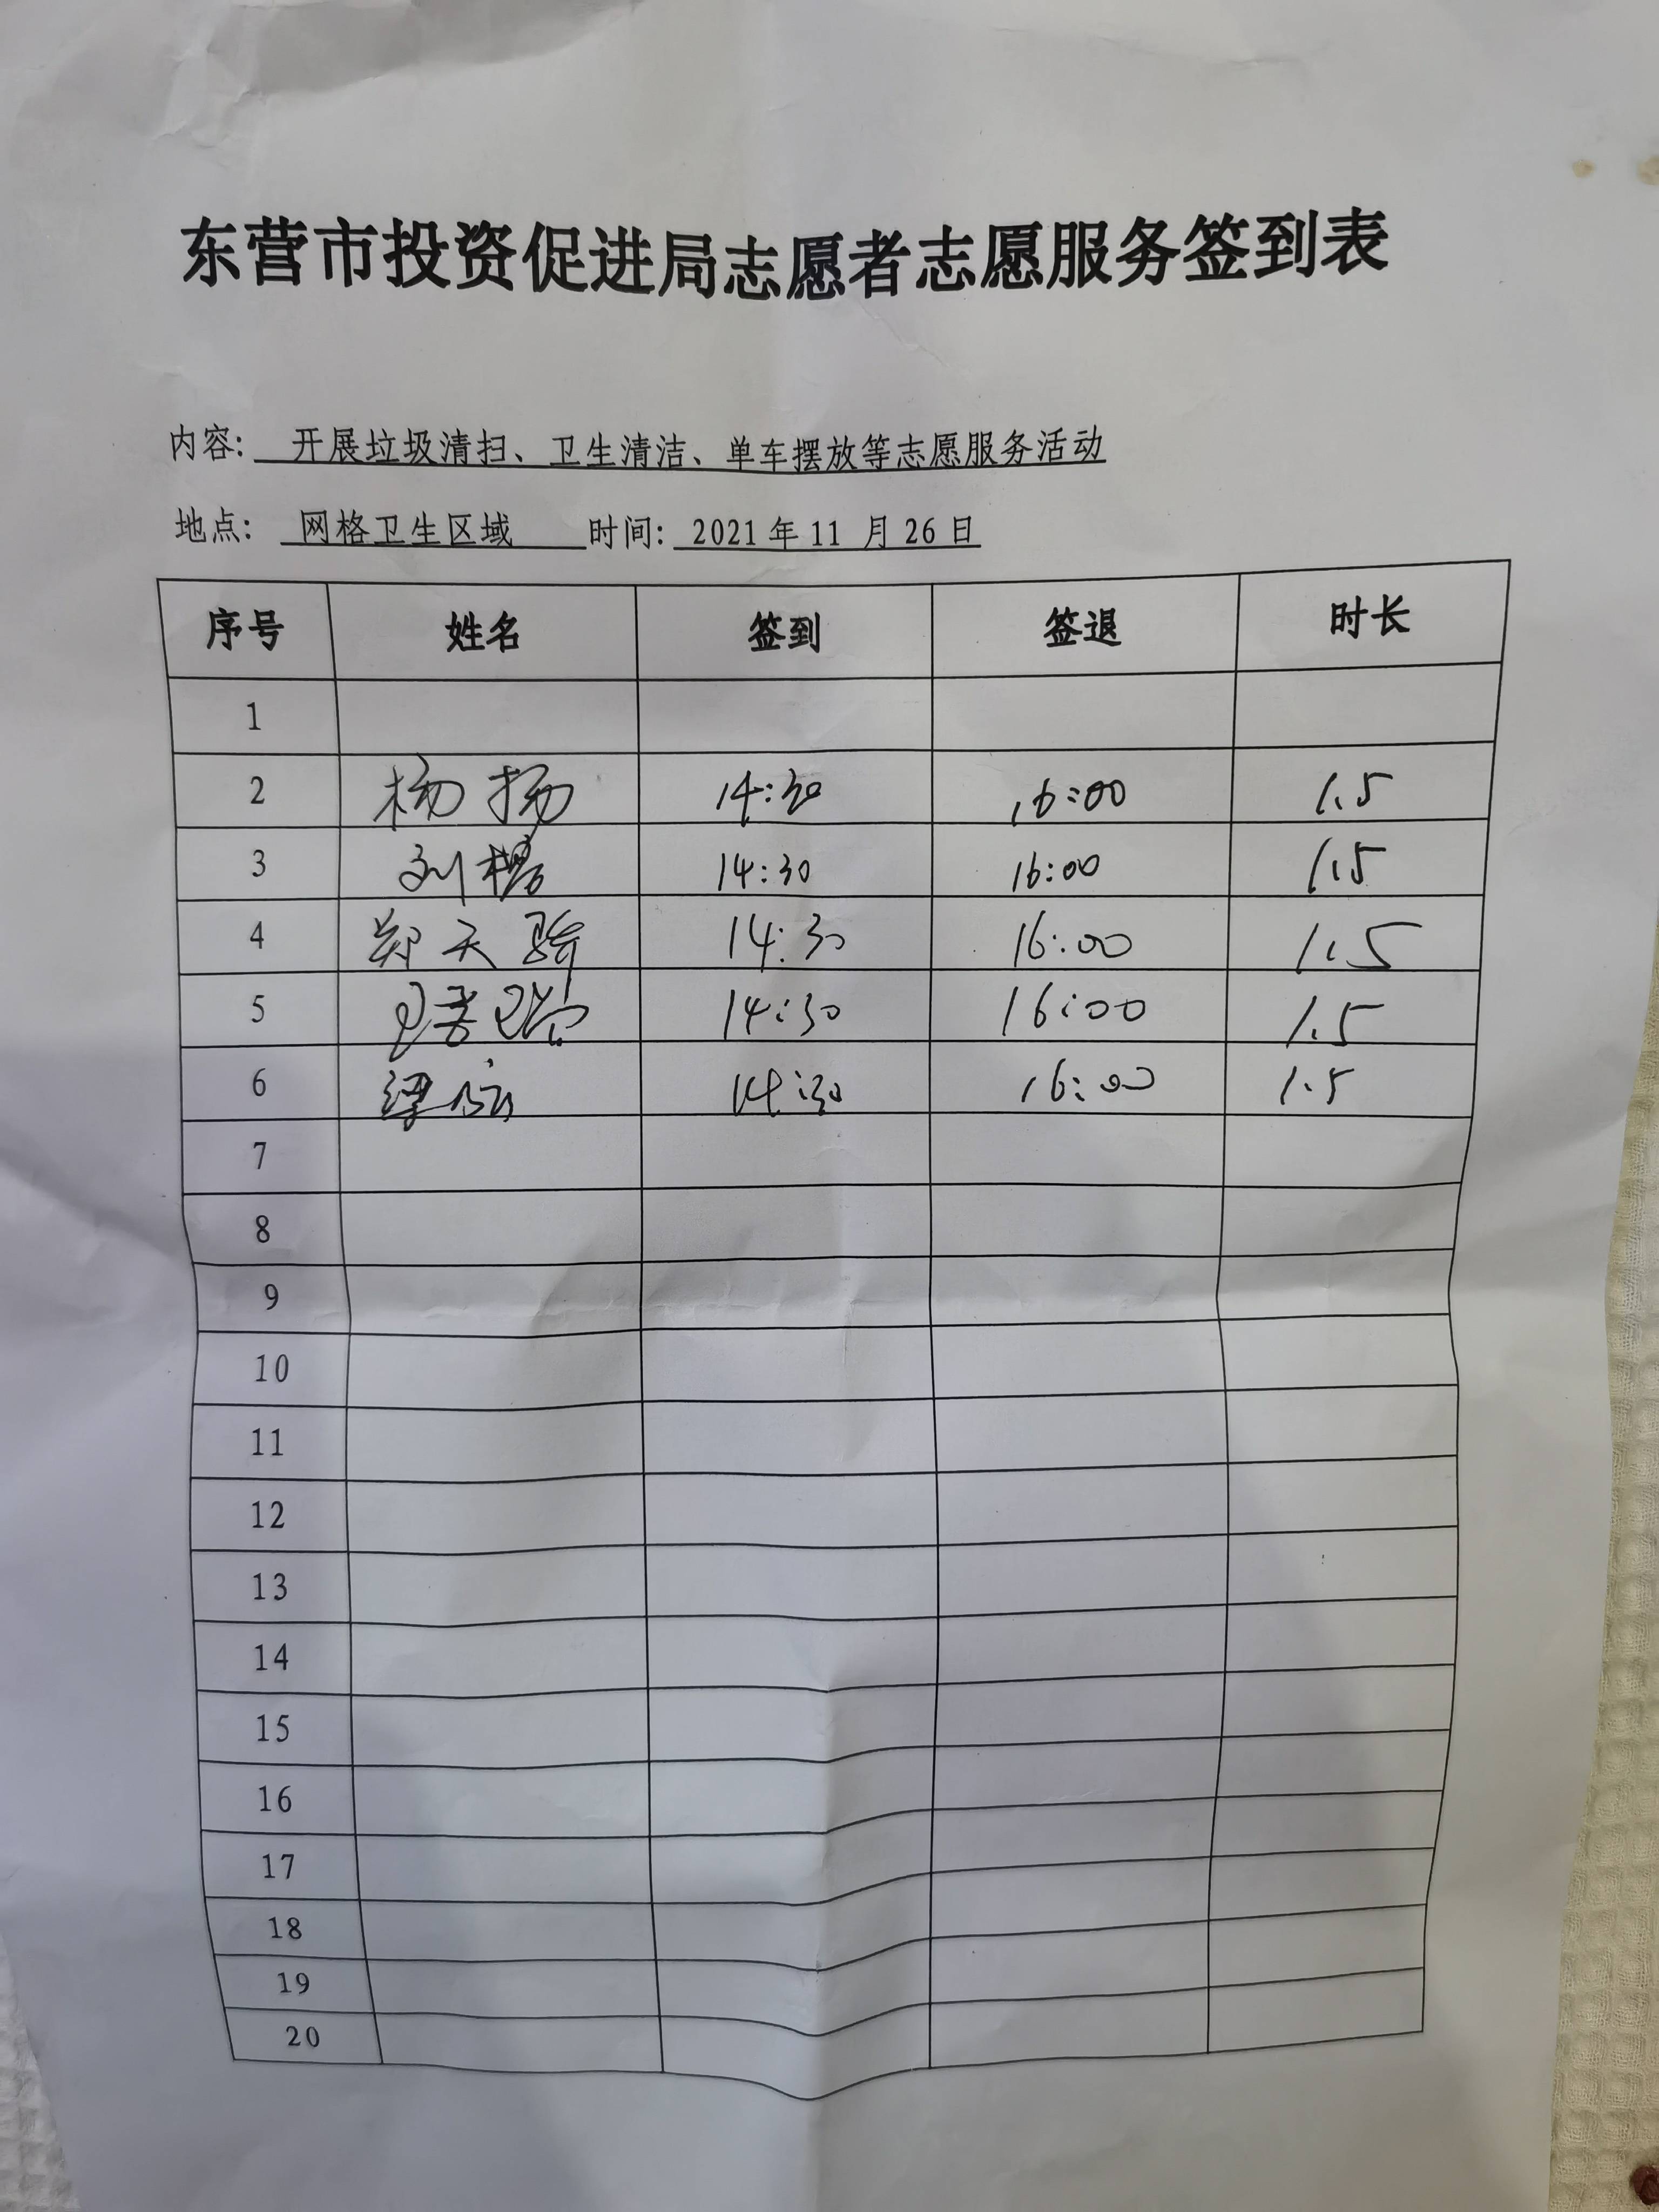 东营市投资促进局志愿者志愿服务签到表
内容: 开展垃圾清扫、卫生清洁、单车摆放等志愿服务活动
地点: 网格卫生区域 时间: 2021年11月26日
序号 姓名 签到 签退 时长
1
2 杨扬 14:30 16:00 1.5
3 刘 14:30 16:00 1.5
4 郑天骄 14:30 16:00 1.5
5 14:30 16:00 1.5
6 14:30 16:00 1.5
7
8
9
10
11
12
13
14
15
16
17
18
19
20